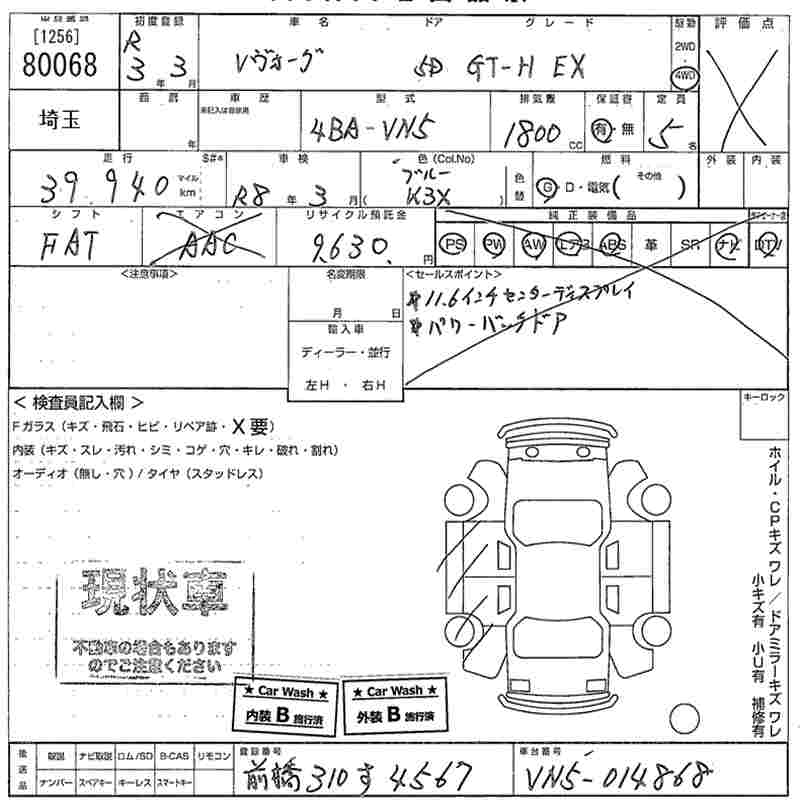 [1256]
80068
初度登録
R
3 年 3 月
車名
ドア
グレード
Vヴォーグ
5D
GT-H EX
駆動
2WD
4WD
評価点
埼玉
年
車歴
未記入は自家用
型式
4BA-VN5
排気量
1800 cc
保証書
有・無
定員
5 名
走行
39,940
マイル
km
S#*
車検
R8 年 3 月
色(Col.No)
ブルー
( K3X )
色替
燃料
G・D・電気( その他 )
外装
内装
シフト
FAT
エアコン
AAC
リサイクル預託金
9,630. 円
純正装備品
PS
PW
AW
エアB
ABS
革
SR
ナビ
DTV
<注意事項>
名変期限
月 日
輸入車
ディーラー・並行
左H ・ 右H
<セールスポイント>
* 11.6インチセンターディスプレイ
* パワーバックドア
キーロック
< 検査員記入欄 >
Fガラス(キズ・飛石・ヒビ・リペア跡・X要)
内装(キズ・スレ・汚れ・シミ・コゲ・穴・キレ・破れ・割れ)
オーディオ(無し・穴)/タイヤ(スタッドレス)
ホイル・CPキズ ワレ / ドアミラーキズ ワレ
小キズ有 小U有 補修有
現状車
不動車の場合もあります
のでご注意ください
★ Car Wash ★
内装 B 施行済
★ Car Wash ★
外装 B 施行済
後送品
取説
ナビ取説
ロム/SD
B-CAS
リモコン
ナンバー
スペアキー
キーレス
スマートキー
登録番号
前橋 310 す 4567
車台番号
VN5-014868